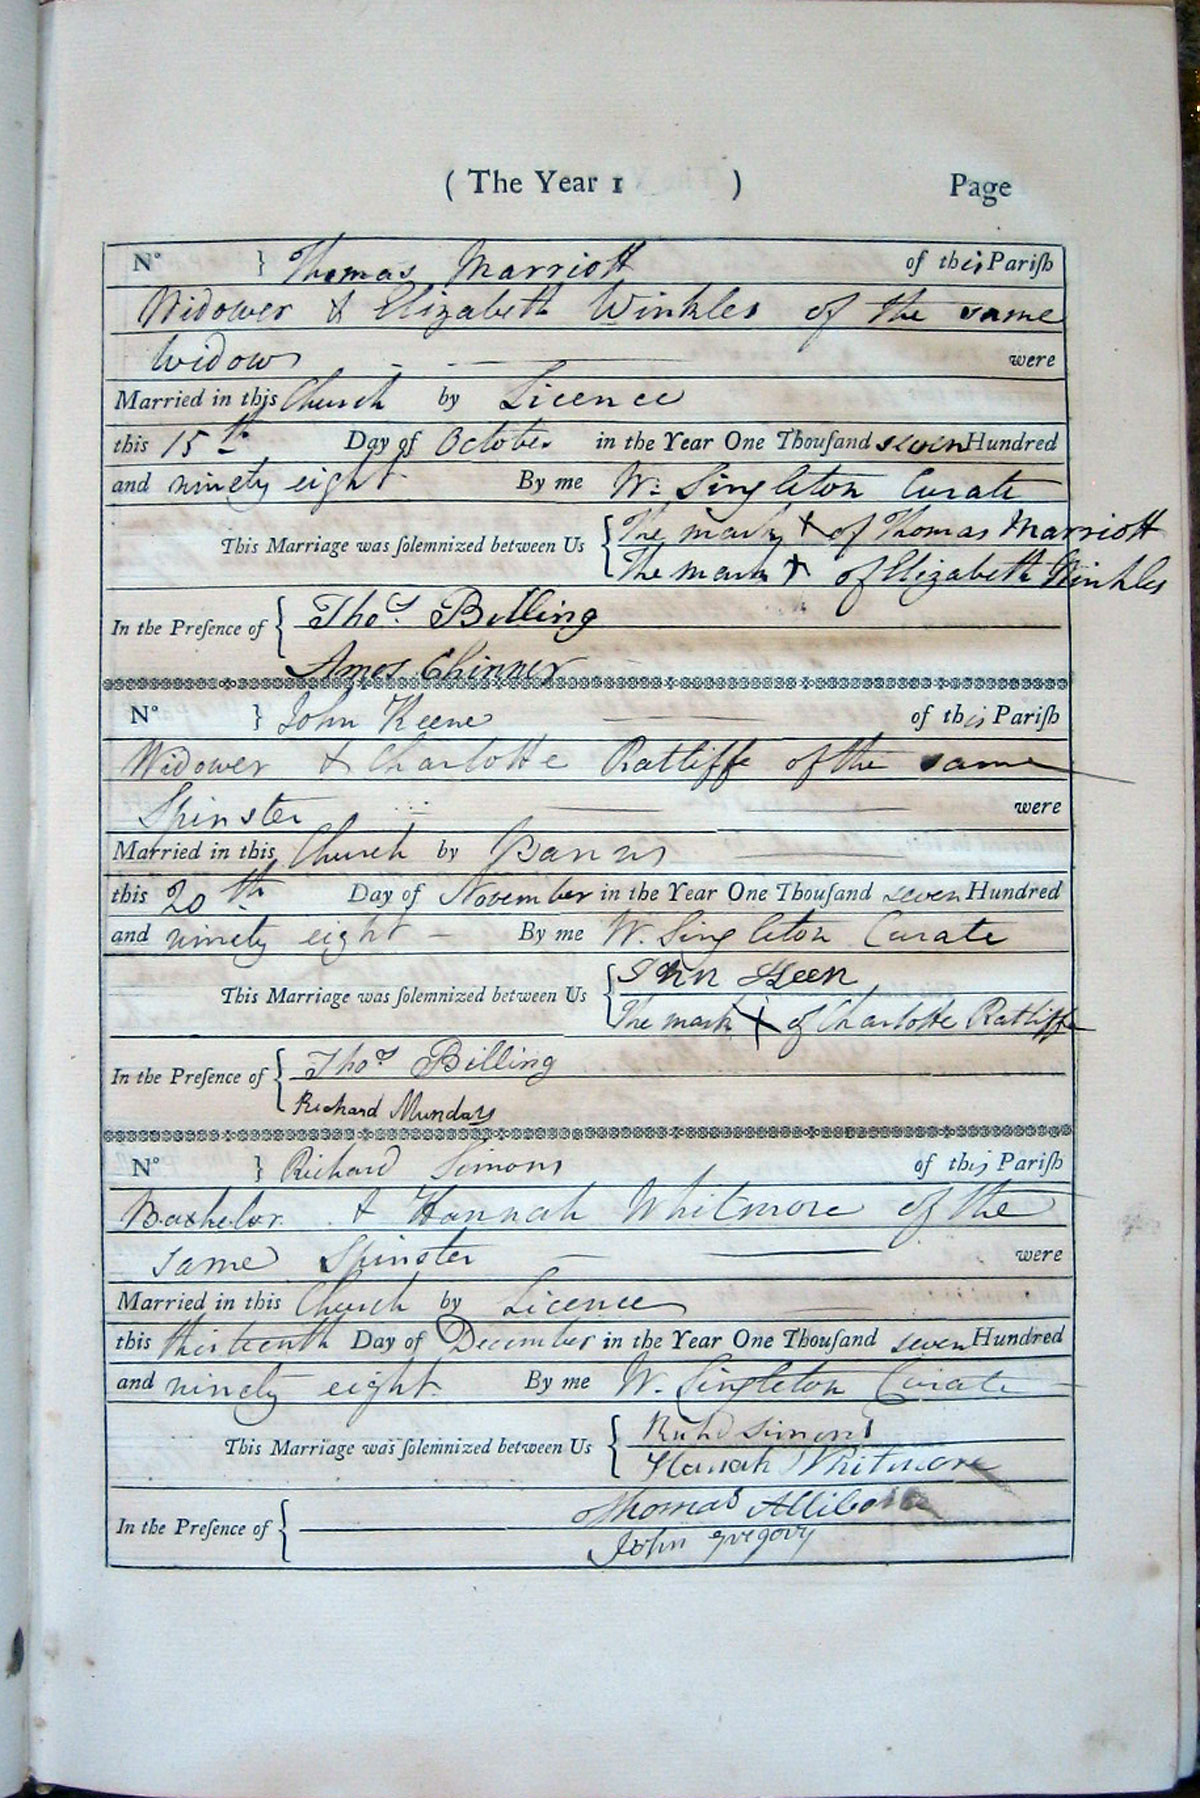 ( The Year 1 ) Page
No } Thomas Marriott of this Parish
Widower & Elizabeth Winkles of the same
Widow were
Married in this Church by Licence
this 15th Day of October in the Year One Thousand seven Hundred
and ninety eight By me W. Singleton Curate
This Marriage was solemnized between Us { The mark X of Thomas Marriott
The mark X of Elizabeth Winkles
In the Presence of { Thos. Billing
Amos Chinner
No } John Keene of this Parish
Widower & Charlotte Ratliffe of the same
Spinster were
Married in this Church by Banns
this 20th Day of November in the Year One Thousand seven Hundred
and ninety eight By me W. Singleton Curate
This Marriage was solemnized between Us { John Keen
The mark X of Charlotte Ratliffe
In the Presence of { Thos. Billing
Richard Mundays
No } Richard Simons of this Parish
Bachelor & Hannah Whitmore of the
same Spinster were
Married in this Church by Licence
this thirteenth Day of December in the Year One Thousand seven Hundred
and ninety eight By me W. Singleton Curate
This Marriage was solemnized between Us { Richd Simons
Hannah Whitmore
Thomas
In the Presence of {
John Gregory